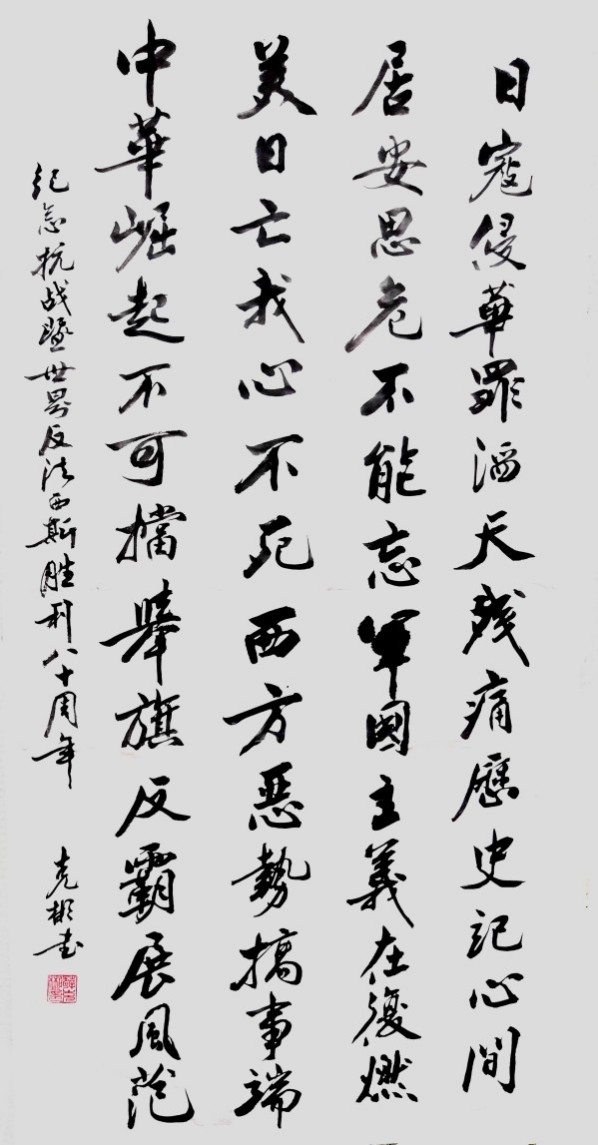 日寇侵華罪滔天残痛歷史記心間
居安思危不能忘軍國主義在復燃
美日亡我心不死西方惡勢搞事端
中華崛起不可擋舉旗反霸展風范
紀念抗战暨世界反法西斯胜利八十周年
克彬书